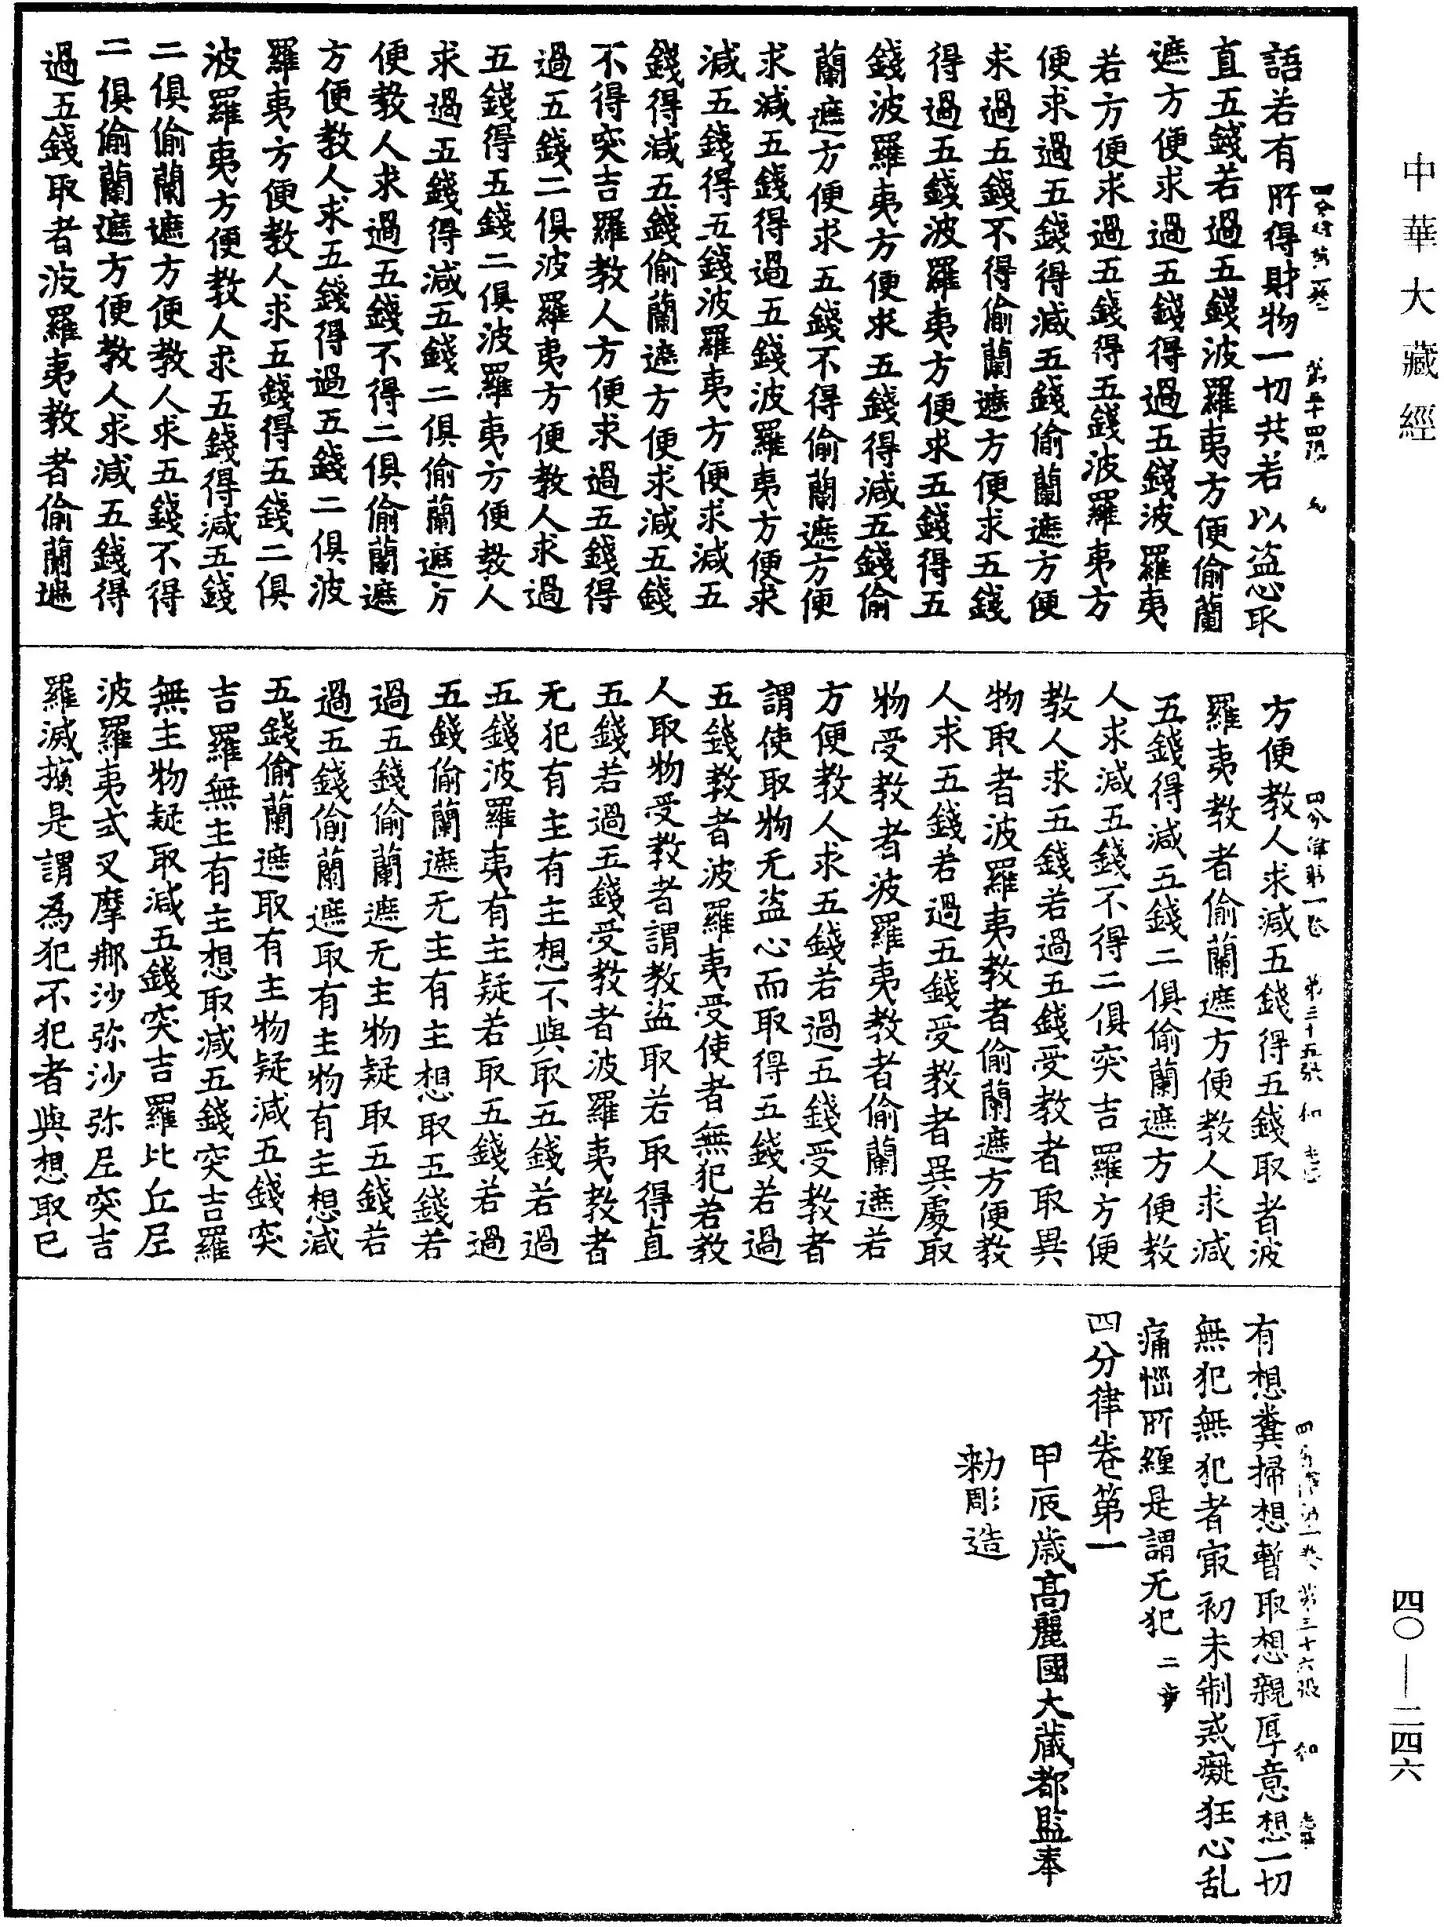 中華大藏經
語若有所得財物一切共若以盜心取
直五錢若過五錢波羅夷方便偷蘭
遮方便求過五錢得過五錢波羅夷
若方便求過五錢得五錢波羅夷方
便求過五錢得減五錢偷蘭遮方便
求過五錢不得偷蘭遮方便求五錢
得過五錢波羅夷方便求五錢得五
錢波羅夷方便求五錢得減五錢偷
蘭遮方便求五錢不得偷蘭遮方便
求減五錢得過五錢波羅夷方便求
減五錢得五錢波羅夷方便求減五
錢得減五錢偷蘭遮方便求減五錢
不得突吉羅教人方便求過五錢得
過五錢二俱波羅夷方便教人求過
五錢得五錢二俱波羅夷方便教人
求過五錢得減五錢二俱偷蘭遮方
便教人求過五錢不得二俱偷蘭遮
方便教人求五錢得過五錢二俱波
羅夷方便教人求五錢得五錢二俱
波羅夷方便教人求五錢得減五錢
二俱偷蘭遮方便教人求五錢不得
二俱偷蘭遮方便教人求減五錢得
過五錢取者波羅夷教者偷蘭遮
四分律第一卷 第三十五張 和
方便教人求減五錢得五錢取者波
羅夷教者偷蘭遮方便教人求減
五錢得減五錢二俱偷蘭遮方便教
人求減五錢不得二俱突吉羅方便
教人求五錢若過五錢受教者取異
物取者波羅夷教者偷蘭遮方便教
人求五錢若過五錢受教者異處取
物受教者波羅夷教者偷蘭遮若
方便教人求五錢若過五錢受教者
謂使取物无盜心而取得五錢若過
五錢教者波羅夷受使者無犯若教
人取物受教者謂教盜取若取得直
五錢若過五錢受教者波羅夷教者
无犯有主有主想不與取五錢若過
五錢波羅夷有主疑若取五錢若過
五錢偷蘭遮无主有主想取五錢若
過五錢偷蘭遮无主物疑取五錢若
過五錢偷蘭遮取有主物有主想減
五錢偷蘭遮取有主物疑減五錢突
吉羅無主有主想取減五錢突吉羅
無主物疑取減五錢突吉羅比丘尼
波羅夷式叉摩那沙弥沙弥尼突吉
羅滅擯是謂為犯不犯者與想取己
第三十六張 和
有想糞掃想暫取想親厚意想一切
無犯無犯者㝡初未制戒癡狂心乱
痛惱所纏是謂无犯 二竟
四分律卷第一
甲辰歲高麗國大藏都監奉
勑彫造
四〇—二四六